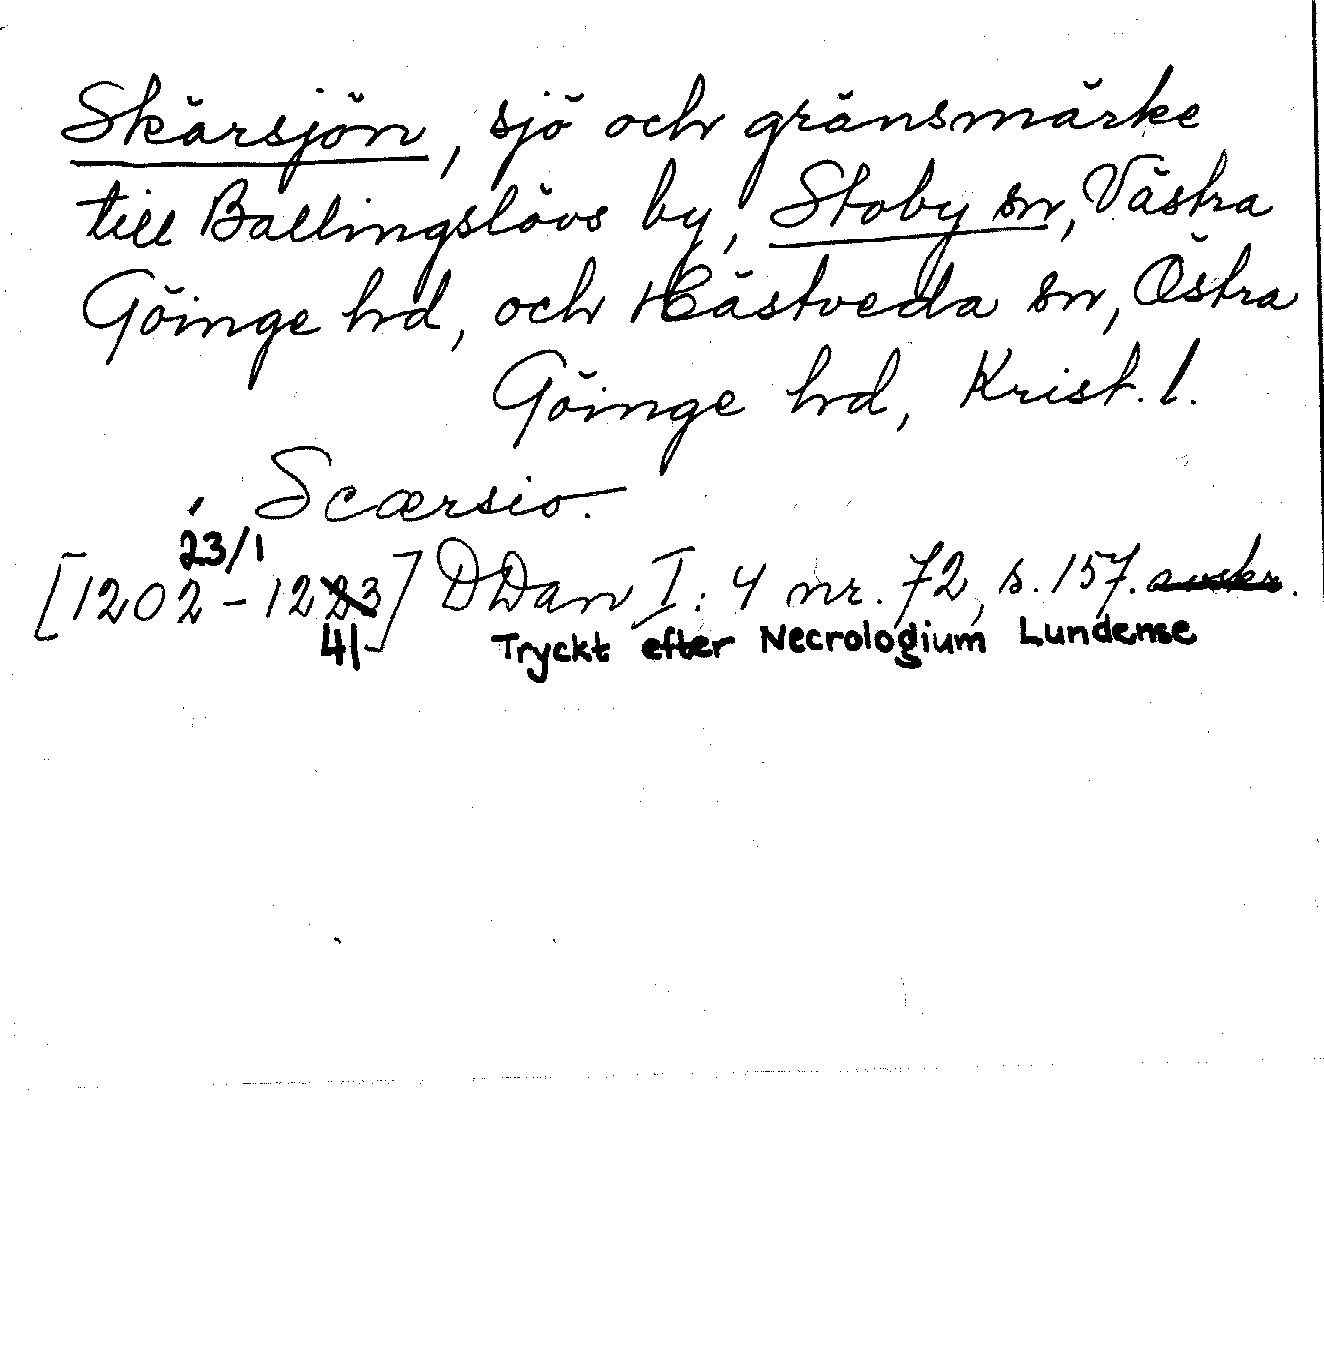 Skärsjön, sjö och gränsmärke
till Ballingslövs by, Stoby sn, Västra
Göinge hd, och Hästveda sn, Östra
Göinge hd, Krist. l.
Scærsio.
23/1
[1202-1223] DDan I: 4 nr. 72, s. 157. avskr.
41 Tryckt efter Necrologium Lundense